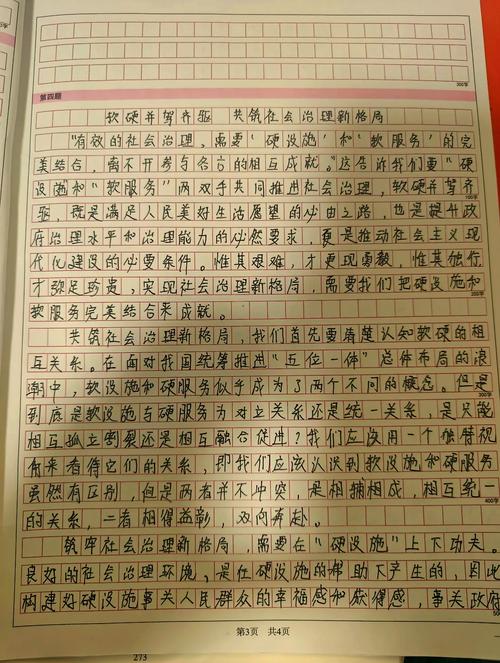 300字
第四题
软硬并驾齐驱 共筑社会治理新格局
"有效的社会治理,需要'硬设施'和'软服务'的完
美结合,离不开参与各方的相互成就。"这告诉我们要"硬
设施"和"软服务"两双手共同推进社会治理,软硬并驾齐
100字
驱,既是满足人民美好生活愿望的必由之路,也是提升政
府治理水平和治理能力的必然要求,更是推动社会主义现
代化建设的必要条件。惟其艰难,才更现勇毅,惟其独行
才弥足珍贵,实现社会治理新格局,需要我们把硬设施和
200字
软服务完美结合来成就。
共筑社会治理新格局,我们首先要清楚认知软硬的相
互关系。在面对我国统筹推进"五位一体"总体布局的浪
潮中,软设施和硬服务似乎成为了两个不同的概念。但是
300字
到底是软设施与硬服务为对立关系还是统一关系,是只能
相互孤立割裂还是相互融合促进?我们应该用一个独特视
角来看待它们的关系,即我们应该认识到软设施和硬服务
虽然有区别,但是两者并不冲突,是相拥相成,相互统一
400字
的关系,二者相得益彰,双向奔赴。
筑牢社会治理新格局,需要在"硬设施"上下功夫。
良好的社会治理环境,是在硬设施的帮助下产生的,因此
构建好硬设施事关人民群众的幸福感和获得感,事关政府
第3页 共4页
273